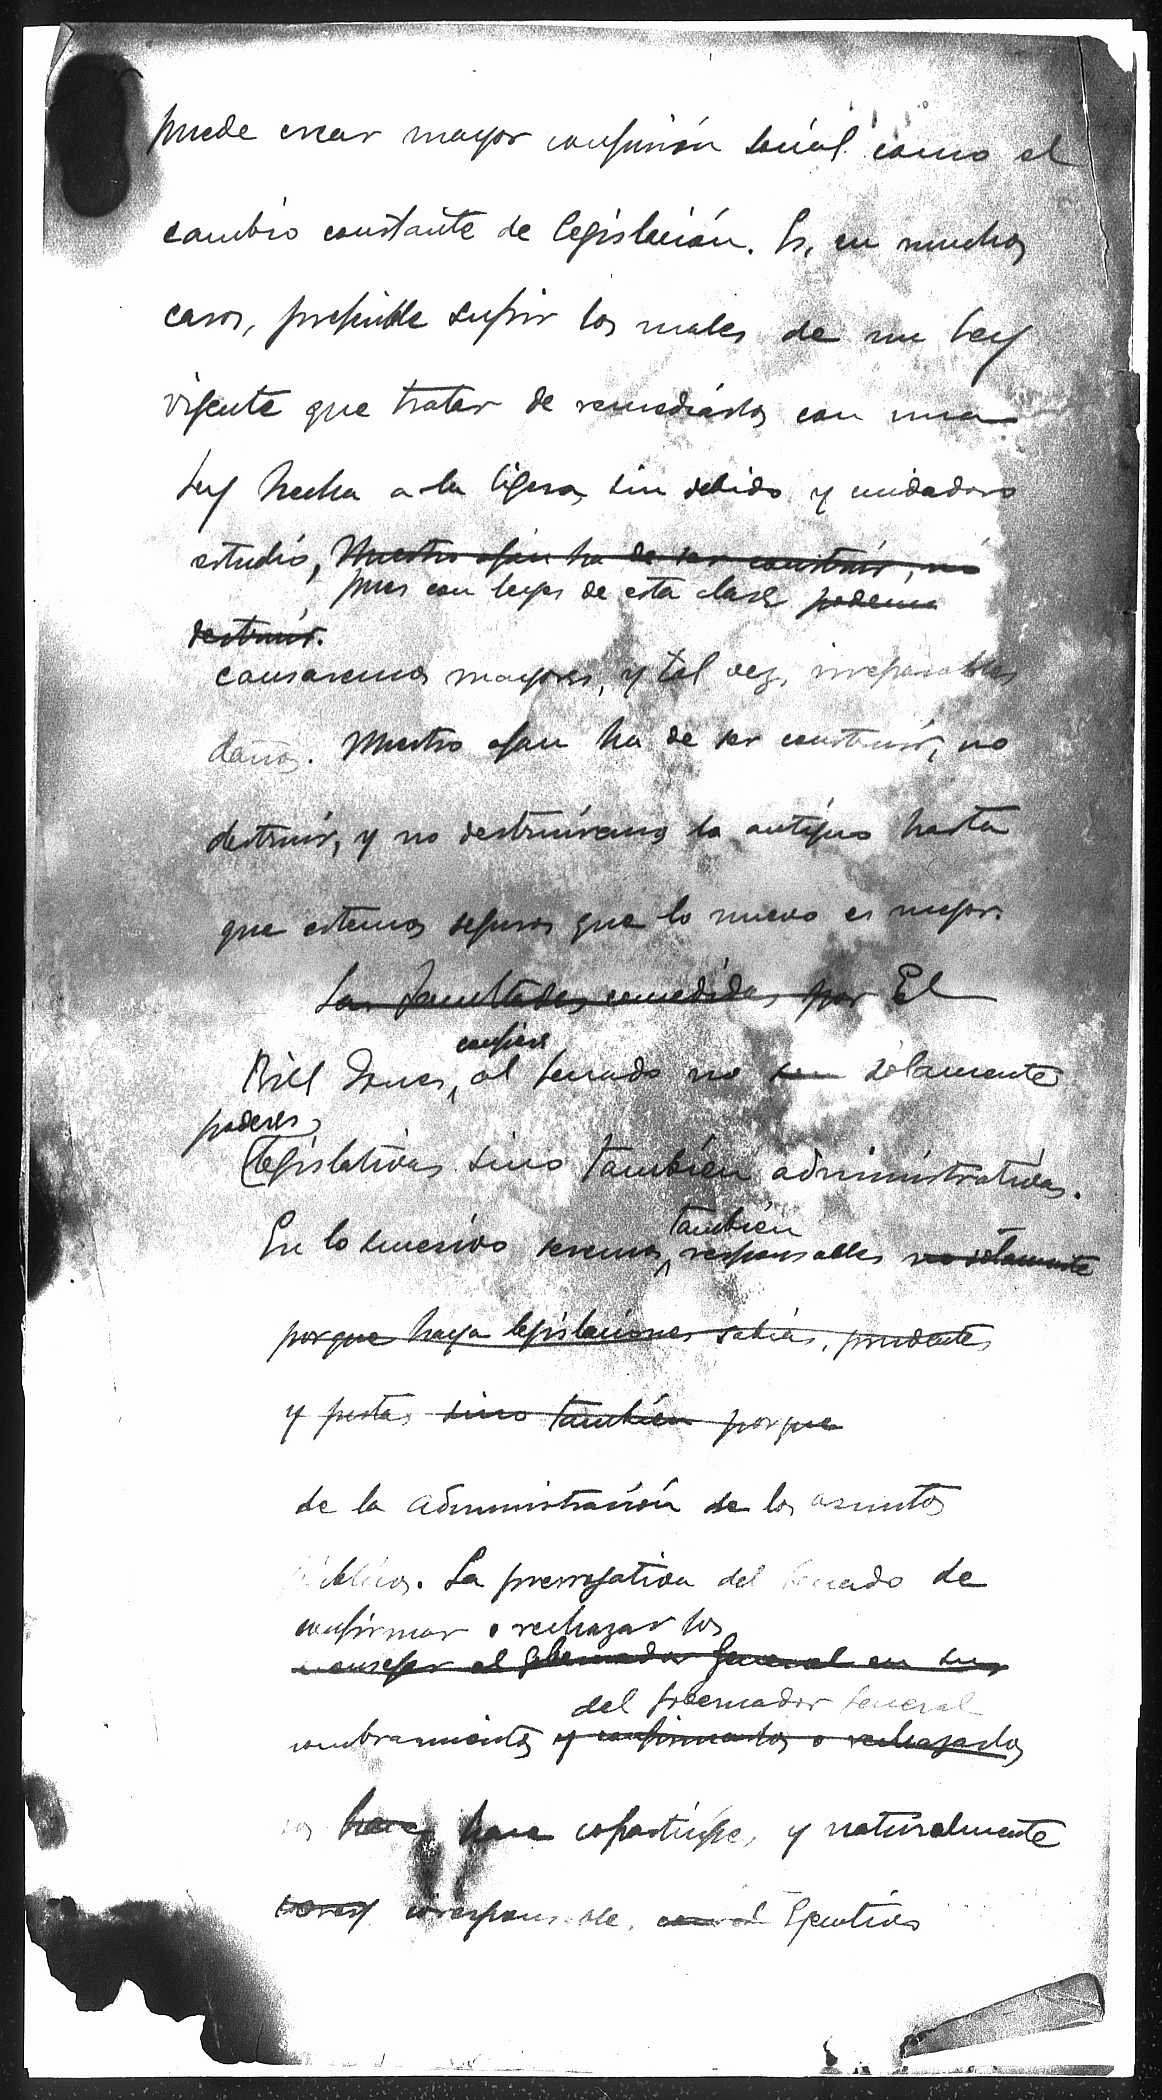 puede crear mayor confusión social como el
cambio constante de legislación. Es, en muchos
casos, preferible sufrir los males de una Ley
vigente que tratar de remediarlos con una
Ley hecha a la ligera, sin debido y cuidadoso
estudio, Nuestro afan ha de ser construir, no
pues con leyes de esta clase podemos
destruir.
causaremos mayores, y tal vez, irreparables
daños. Nuestro afan ha de ser construir, no
destruir, y no destruiremos lo antiguo hasta
que estemos seguros que lo nuevo es mejor.
Las facultades concedidas por El
confiere
Bill Jones, al Senado no son sólamente
poderes
legislativas sino también administrativas.
también
En lo sucesivo seremos responsables no sólamente
porque haya legislaciones sabias, prudentes
y justas sino también porque
de la administración de los asuntos
públicos. La prerrogativa del Senado de
confirmar o rechazar los
aconsejar al Gobernador General en sus
del Gobernador General
nombramientos y confirmarlos o rechazarlos
nos hace hace copartícipe, y naturalmente
corresponsable, con el Ejecutivo